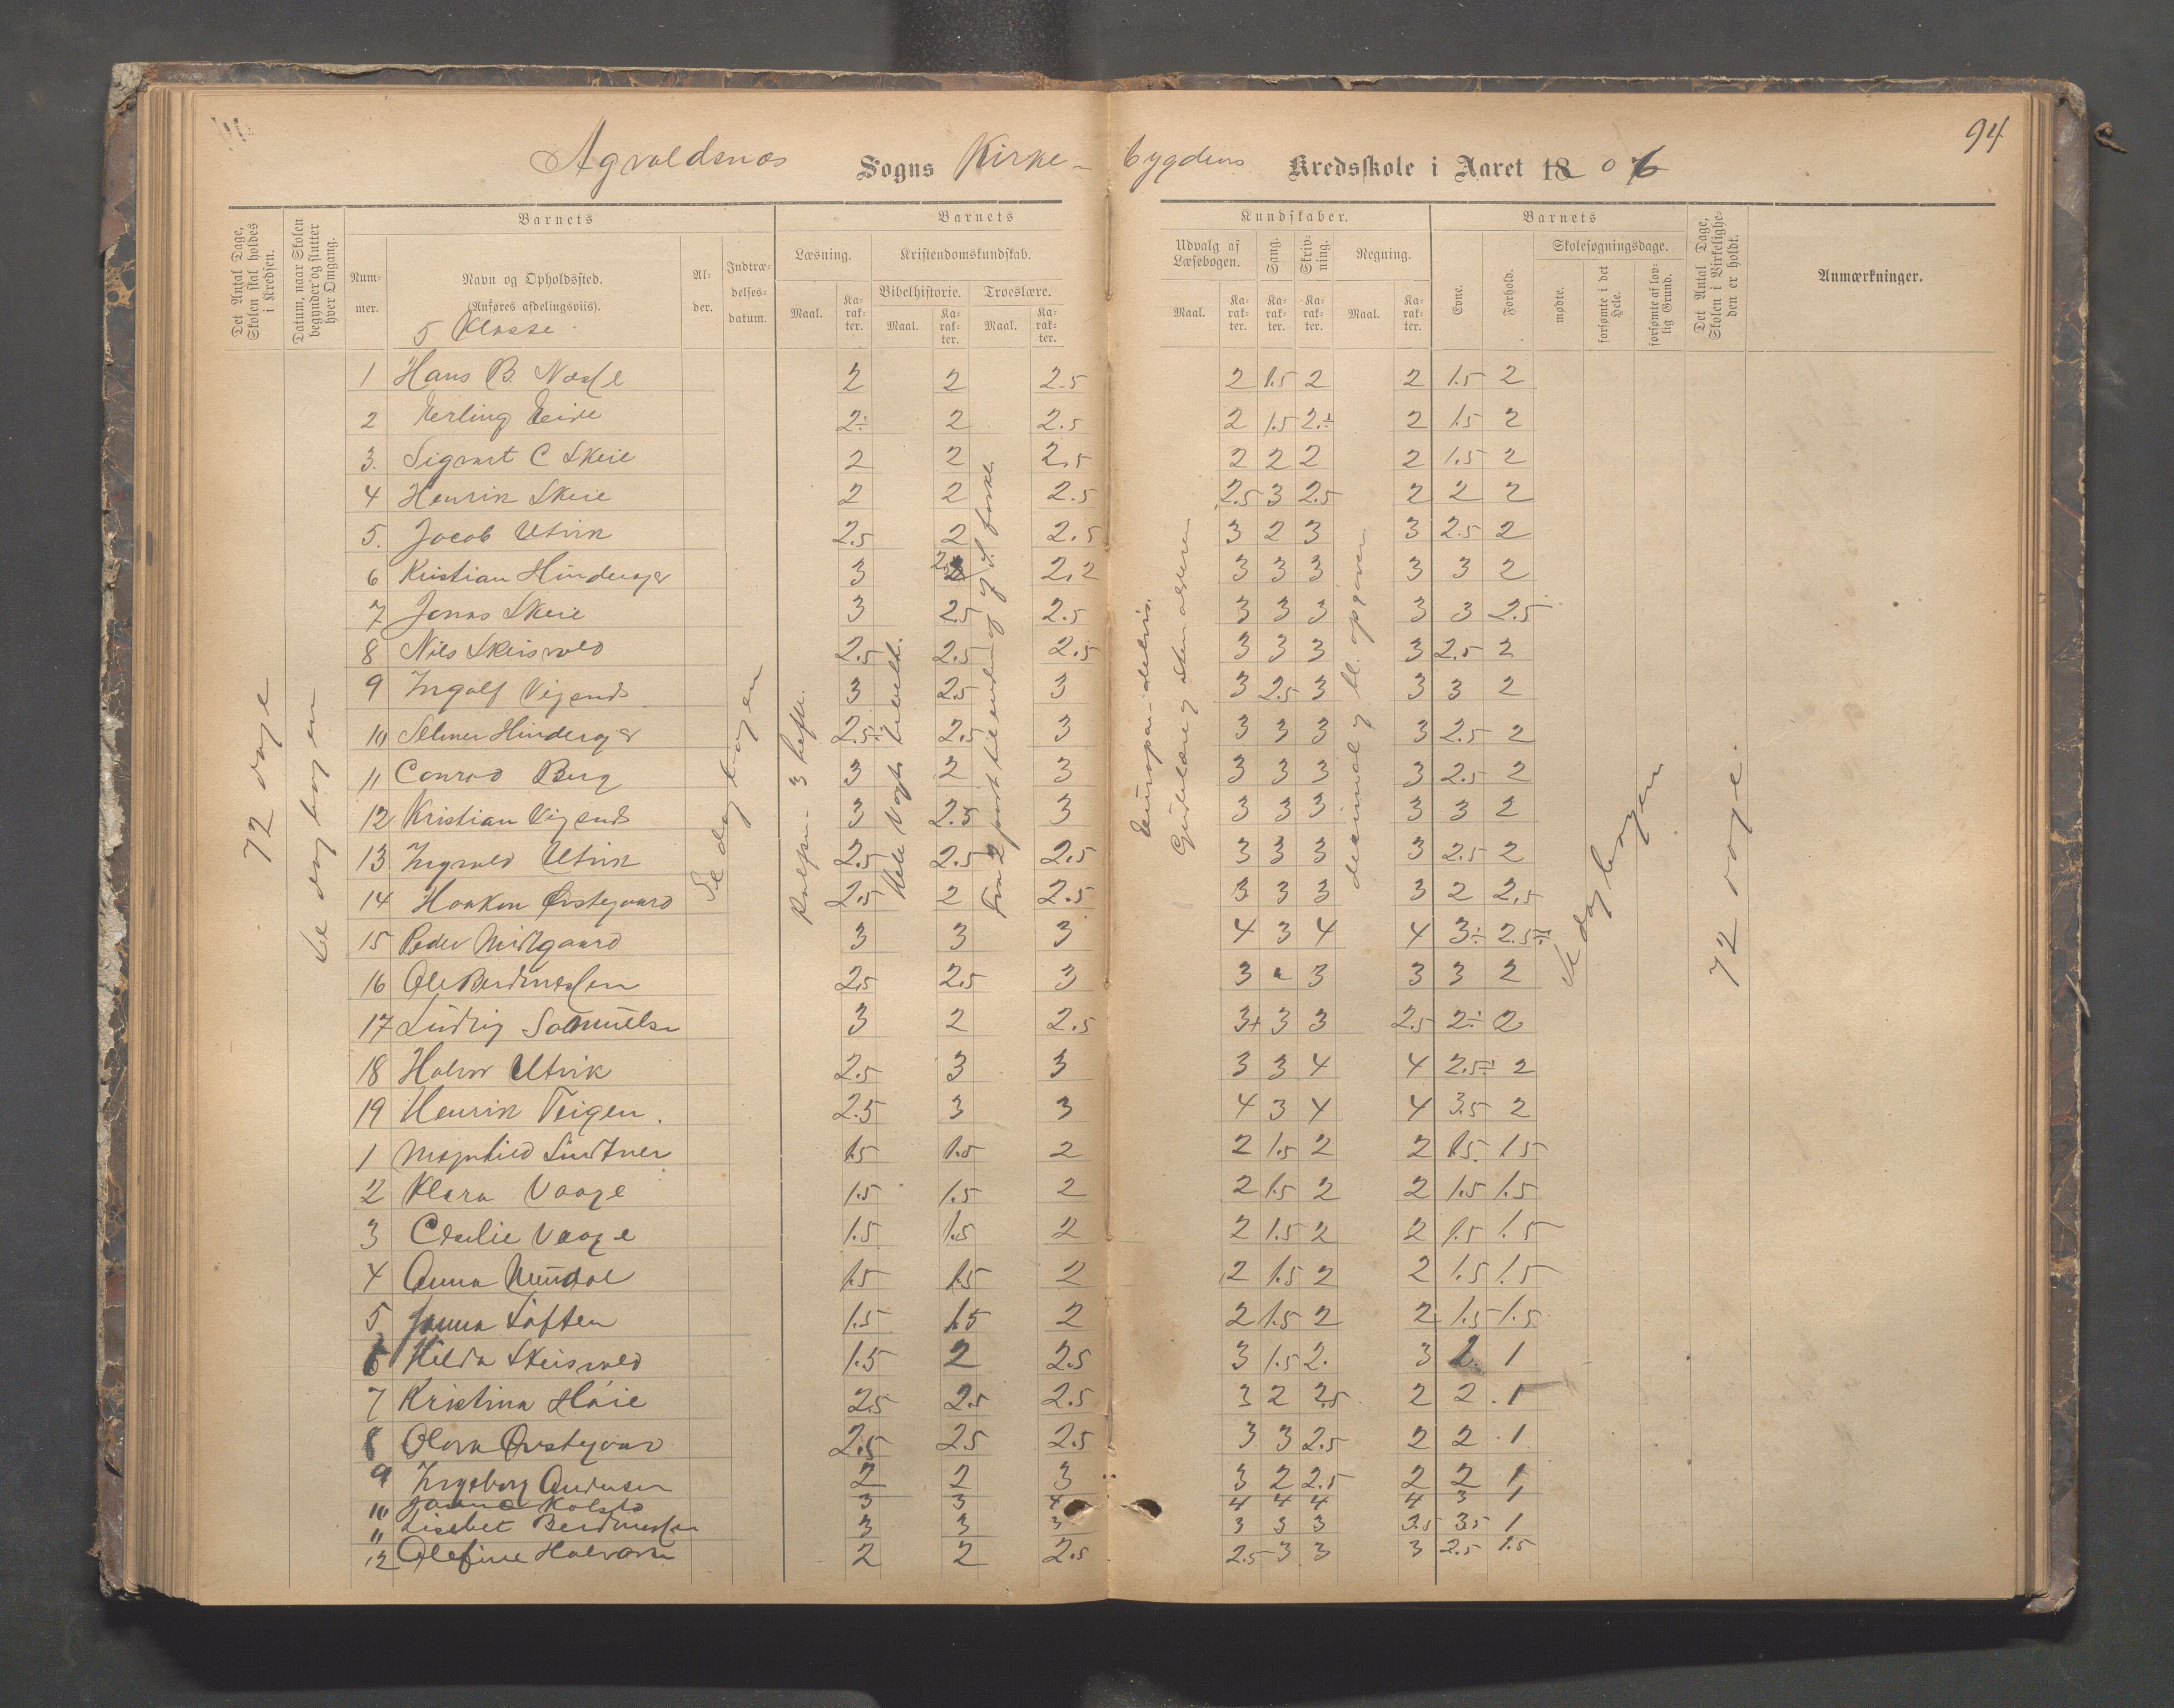 94
Agvaldsnes Sogns Kirke- bygdens Kredsskole i Aaret 1806
Det Antal Dage, Skolen skal holdes i Kredsen.
Datum, naar Skolen begynder og slutter hver Omgang.
Barnets
Nummer.
Navn og Opholdssted.
(Anføres afdelingsviis).
5 Klasse
Alder.
Indtrædelsesdatum.
Barnets
Læsning.
Maal.
Karakter.
Kristendomskundskab.
Bibelhistorie.
Maal.
Karakter.
Troeslære.
Maal.
Karakter.
Kundskaber.
Udvalg af Læsebogen.
Maal.
Karakter.
Sang.
Karakter.
Skrivning.
Karakter.
Regning.
Maal.
Karakter.
Barnets
Evne.
Forhold.
Skolesøgningsdage.
mødte.
forsømte i det Hele.
forsømte af lovlig Grund.
Det Antal Dage, Skolen i Virkeligheden er holdt.
Anmærkninger.
72 dage
Se dagbogen
Se dagbogen
3 hefte.
Hele Vogts
Europa
decimal og
Se dagbogen
72 dage.
1 Hans B. Nesse 2 2 2.5 2 1.5 2 2 1.5 2
2 Erling Eide 2÷ 2 2.5 2 1.5 2.÷ 2 1.5 2
3. Sigvart C Skeie 2 2 2.5 2 2 2 2 1.5 2
4 Henrik Skeie 2 2 2.5 2.5 3 2.5 2 2 2
5. Jacob Utvik 2.5 2 2.5 3 2 3 3 2.5 2
6 Kristian Hinderager 3 2 2.2 3 3 3 3 3 2
7 Jonas Skeie 3 2.5 2.5 3 3 3 3 3 2.5
8 Nils Skeisvold 2.5 2.5 2.5 3 3 3 3 2.5 2
9 Ingolf Vigends 3 2.5 3 3 2.5 3 3 3 2
10 Selmer Hinderager 2.5÷ 2.5 3 3 3 3 3 2.5 2
11 Conrad Berg 3 2 3 3 3 3 3 2.5 2
12 Kristian Vigends 3 2.5 3 3 3 3 3 3 2
13 Ingvald Utvik 2.5 2.5 2.5 3 3 3 3 2.5 2
14 Haakon Østegaard 2.5 2 2.5 3 3 3 3 2 2.5
15 Peder Midtgaard 3 3 3 4 3 4 4 3÷ 2.5÷
16 Ole Berdinessen 2.5 2.5 3 3 3 3 3 2
17 Ludvig Samuelsen 3 2 2.5 3+ 3 3 2.5 2÷ 2
18 Halvor Utvik 2.5 3 3 3 3 4 4 2.5÷ 2
19 Henrik Teigen. 2.5 3 3 4 3 4 4 3.5 2
1 Magnhild Lindtner 1.5 1.5 2 2 1.5 2 2 1.5 1.5
2 Klara Vaage 1.5 1.5 2 2 1.5 2 2 1.5 1.5
3 Cecilie Vaage 1.5 1.5 2 2 1.5 2 2 1.5 1.5
4 Anna Mundal 1.5 1.5 2 2 1.5 2 2 1.5 1.5
5 Janna Liften 1.5 1.5 2 2 1.5 2 2 1.5 1.5
6 Hilda Skeisvold 1.5 2 2.5 3 1.5 2. 3 2. 1
7 Kristina Høie 2.5 2.5 2.5 3 2 2.5 2 2 1
8 Olava Østegaar 2.5 2.5 2.5 3 3 2.5 2 2 1
9 Ingeborg Andersen 2 2 3 3 2 2.5 2 2 1
10 Janna Kolstø 3 3 4 4 4 4 4 3 1
11 Lisebet Berdinessen 3 3 3 3 3 3 3.5 3.5 1
12 Olefine Halvorsen 2 2 2.5 2.5 3 3 3 2.5 1.5